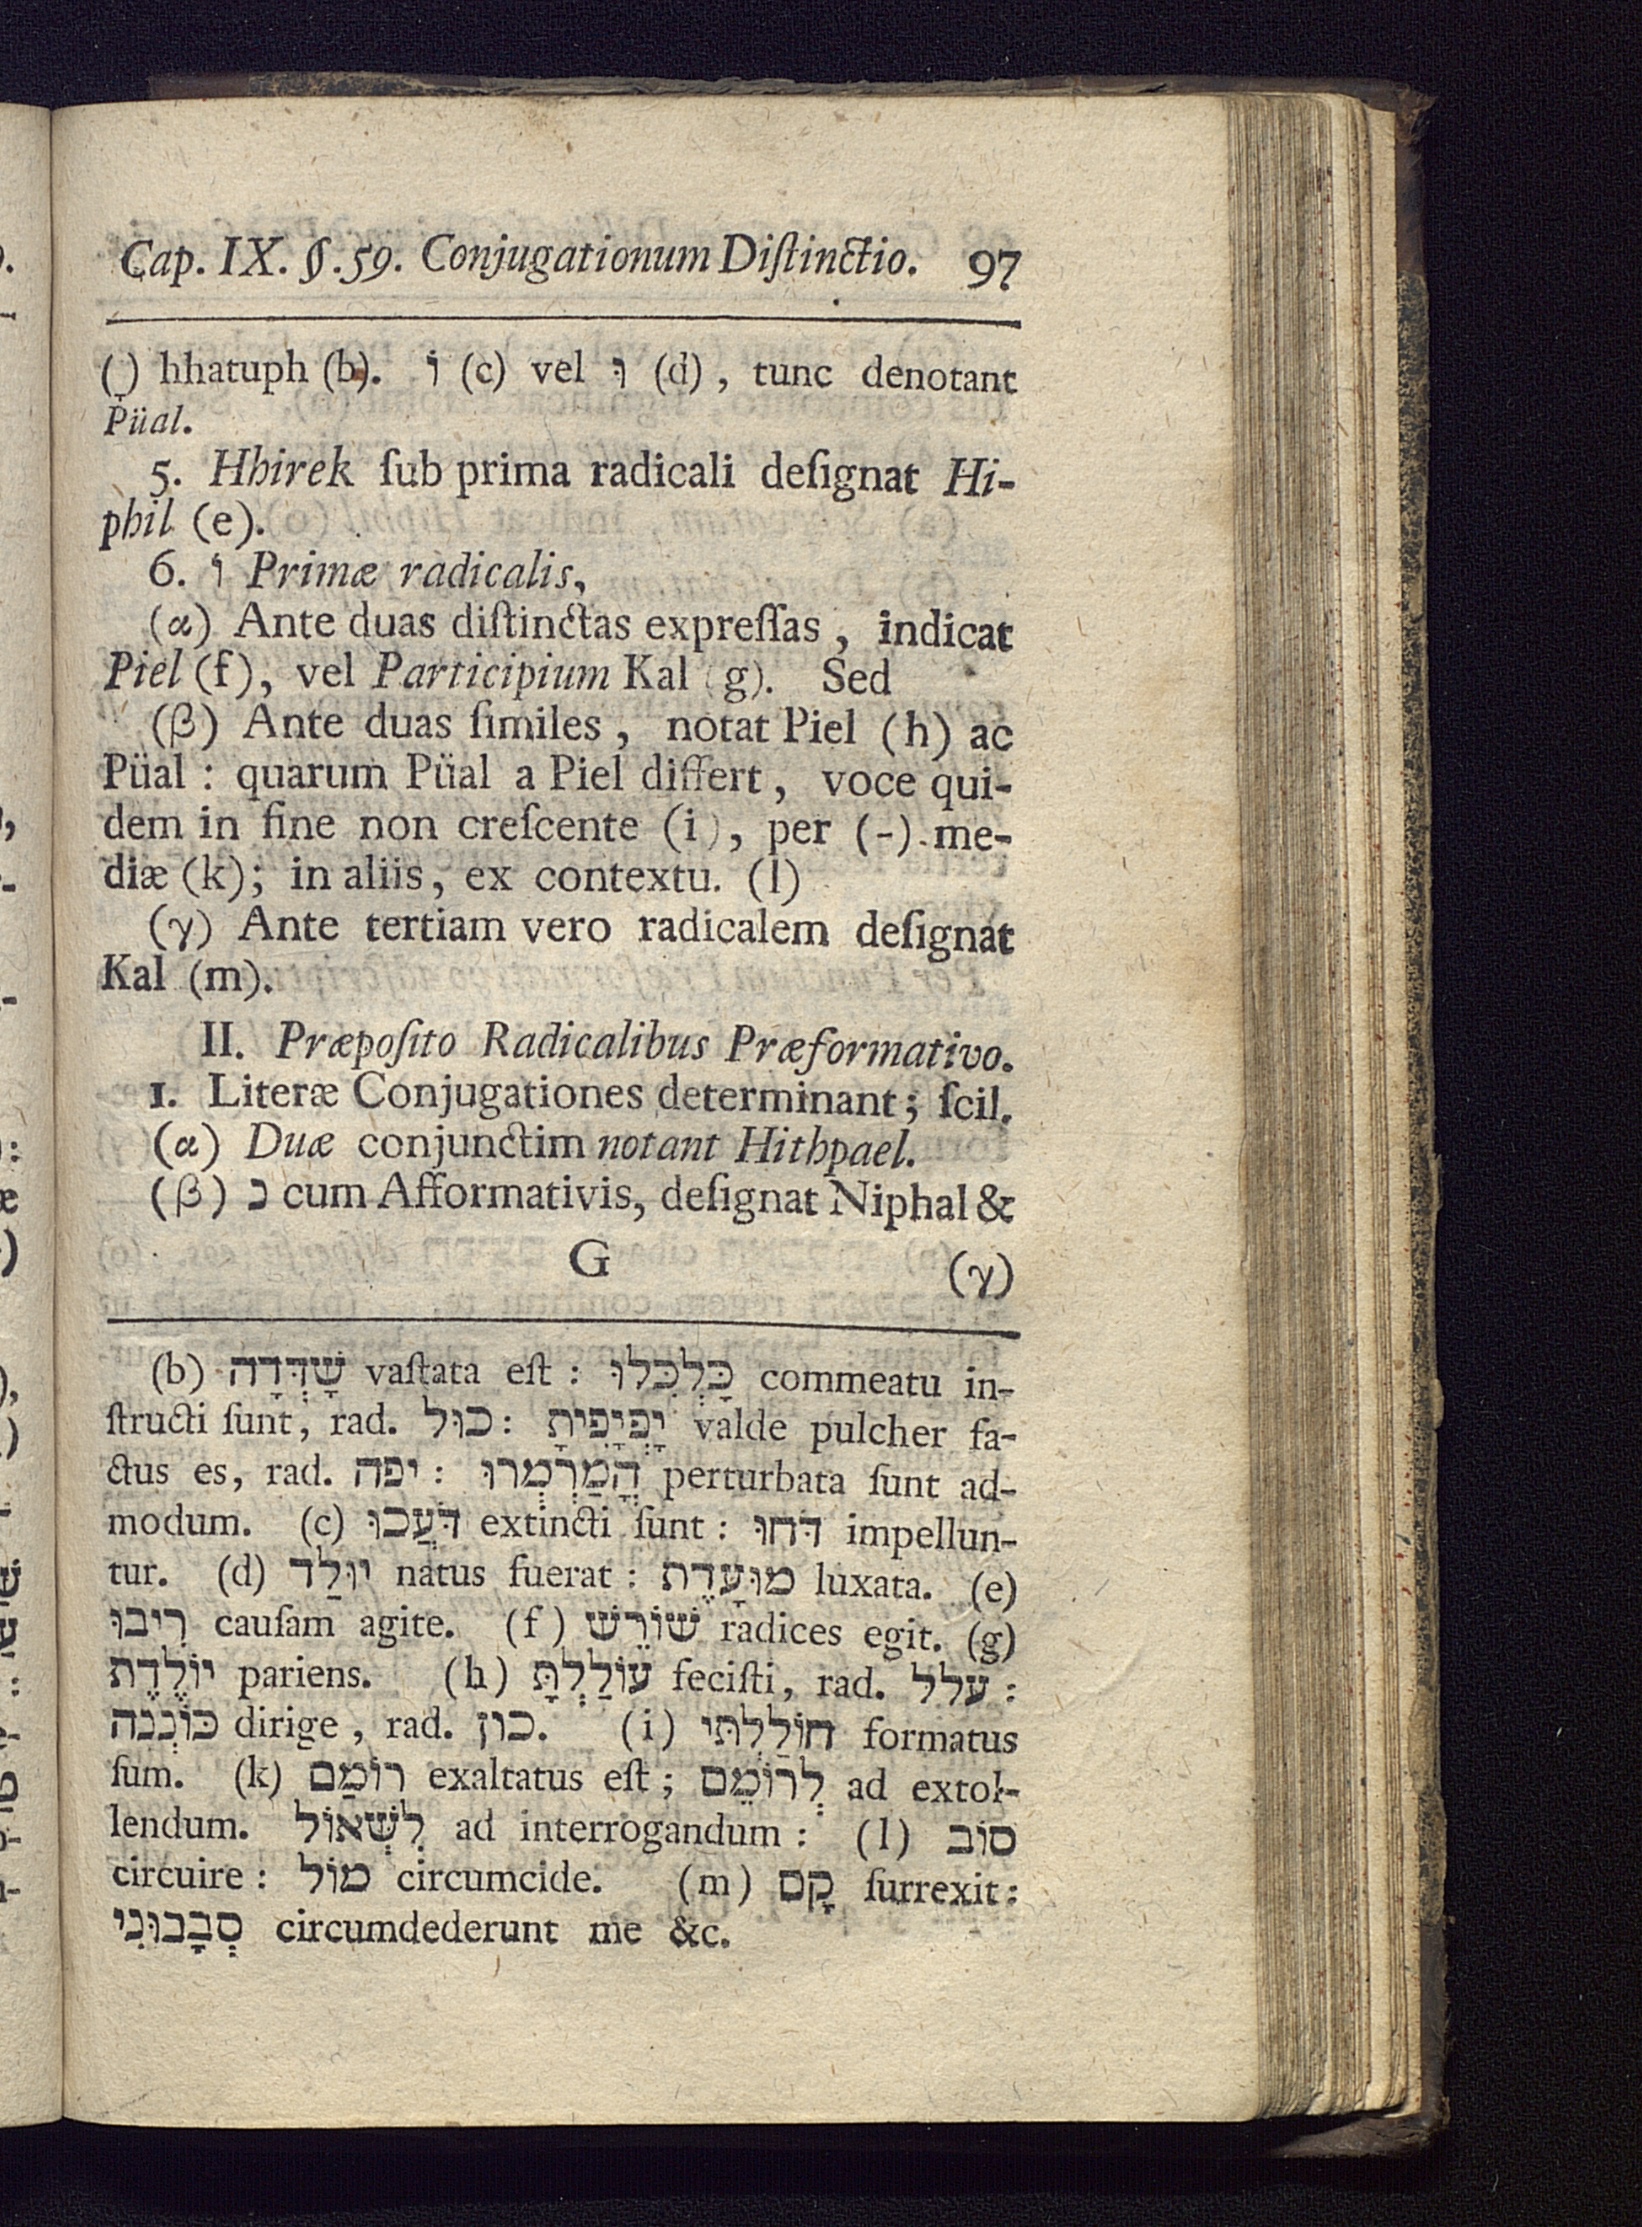 Cap. IX. §. 59. Conjugationum Diſtinctio. 97
(ָ) hhatuph (b). וֹ (c) vel וּ (d), tunc denotant
Püal.
5. Hhirek ſub prima radicali deſignat Hi-
phil (e).
6. וֹ Primæ radicalis,
(α) Ante duas diſtinctas expreſſas, indicat
Piel (f), vel Participium Kal (g). Sed
(β) Ante duas ſimiles, notat Piel (h) ac
Püal: quarum Püal a Piel differt, voce qui-
dem in fine non creſcente (i), per (-) me-
diæ (k); in aliis, ex contextu. (l)
(γ) Ante tertiam vero radicalem deſignat
Kal (m).
II. Præpoſito Radicalibus Præformativo.
1. Literæ Conjugationes determinant; ſcil.
(α) Duæ conjunctim notant Hithpael.
(β) נ cum Afformativis, deſignat Niphal &
G (γ)
(b) שָׁדְּדָה vaſtata eſt: כָּלְכְּלוּ commeatu in-
ſtructi ſunt, rad. כול: יָפְיָפִיתָ valde pulcher fa-
ctus es, rad. יפה: הֳמַרְמְרוּ perturbata ſunt ad-
modum. (c) דֹּעֲכוּ extincti ſunt: דֹּחוּ impellun-
tur. (d) יוּלַּד natus fuerat: מוּעָדֶת luxata. (e)
רִיבוּ cauſam agite. (f) שׁוֹרֵשׁ radices egit. (g)
יוֹלֶדֶת pariens. (h) עוֹלַלְתָּ feciſti, rad. עלל:
כּוֹנְנה dirige, rad. כון. (i) חוֹלַלְתִּי formatus
ſum. (k) רוֹמַם exaltatus eſt; לְרוֹמֵם ad extol-
lendum. לִשְׁאוֹל ad interrogandum: (l) סוֹב
circuire: מוֹל circumcide. (m) קָם ſurrexit:
סְבָבוּנִי circumdederunt me &c.